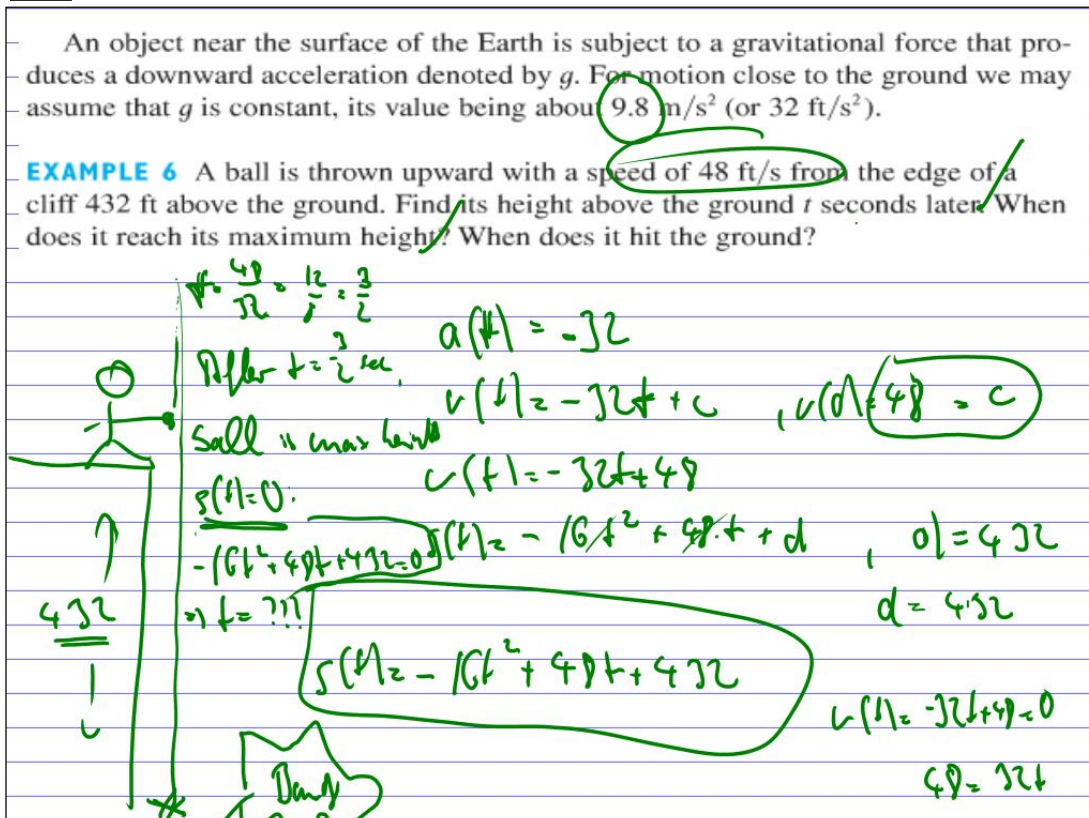 An object near the surface of the Earth is subject to a gravitational force that pro-
duces a downward acceleration denoted by g. For motion close to the ground we may
assume that g is constant, its value being about 9.8 m/s² (or 32 ft/s²).
EXAMPLE 6 A ball is thrown upward with a speed of 48 ft/s from the edge of a
cliff 432 ft above the ground. Find its height above the ground t seconds later. When
does it reach its maximum height? When does it hit the ground?
t = 48/32 = 12/8 = 3/2
After t = 3/2 sec,
ball is max height
s(t)=0:
-16t²+48t+432=0
=> t= ???
432
a(t) = -32
v(t) = -32t + c , v(0)=48 = c
v(t) = -32t+48
s(t) = -16t² + 48.t + d , 0)=432
d = 432
s(t) = -16t² + 48t + 432
v(t) = -32t+48=0
48 = 32t